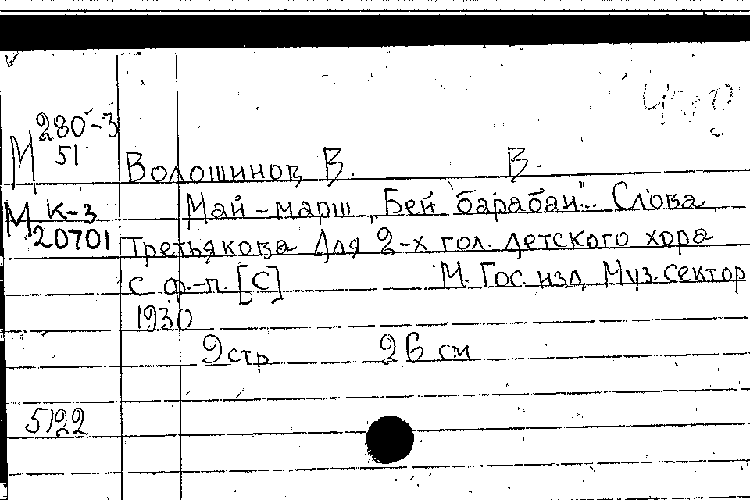 М 280-3
51
Волошинов В. В.
М К-3
20701
Май-марш „Бей барабан". Слова
Третьякова Для 2-х гол. детского хора
с ф.-п. [С] М. Гос. изд. Муз. сектор
1930
9 стр 26 см
5122